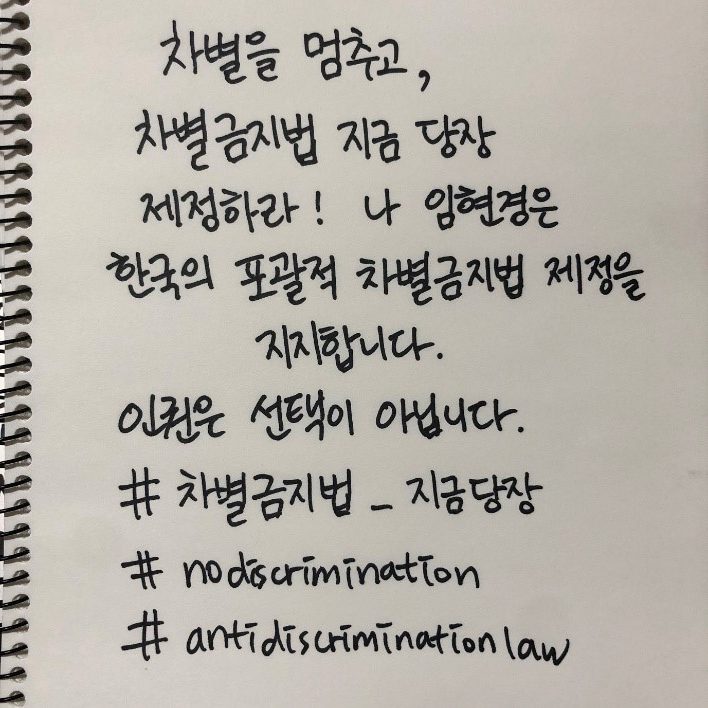 차별을 멈추고,
차별금지법 지금 당장
제정하라! 나 임현경은
한국의 포괄적 차별금지법 제정을
지지합니다.
인권은 선택이 아닙니다.
# 차별금지법 _ 지금당장
# nodiscrimination
# antidiscriminationlaw